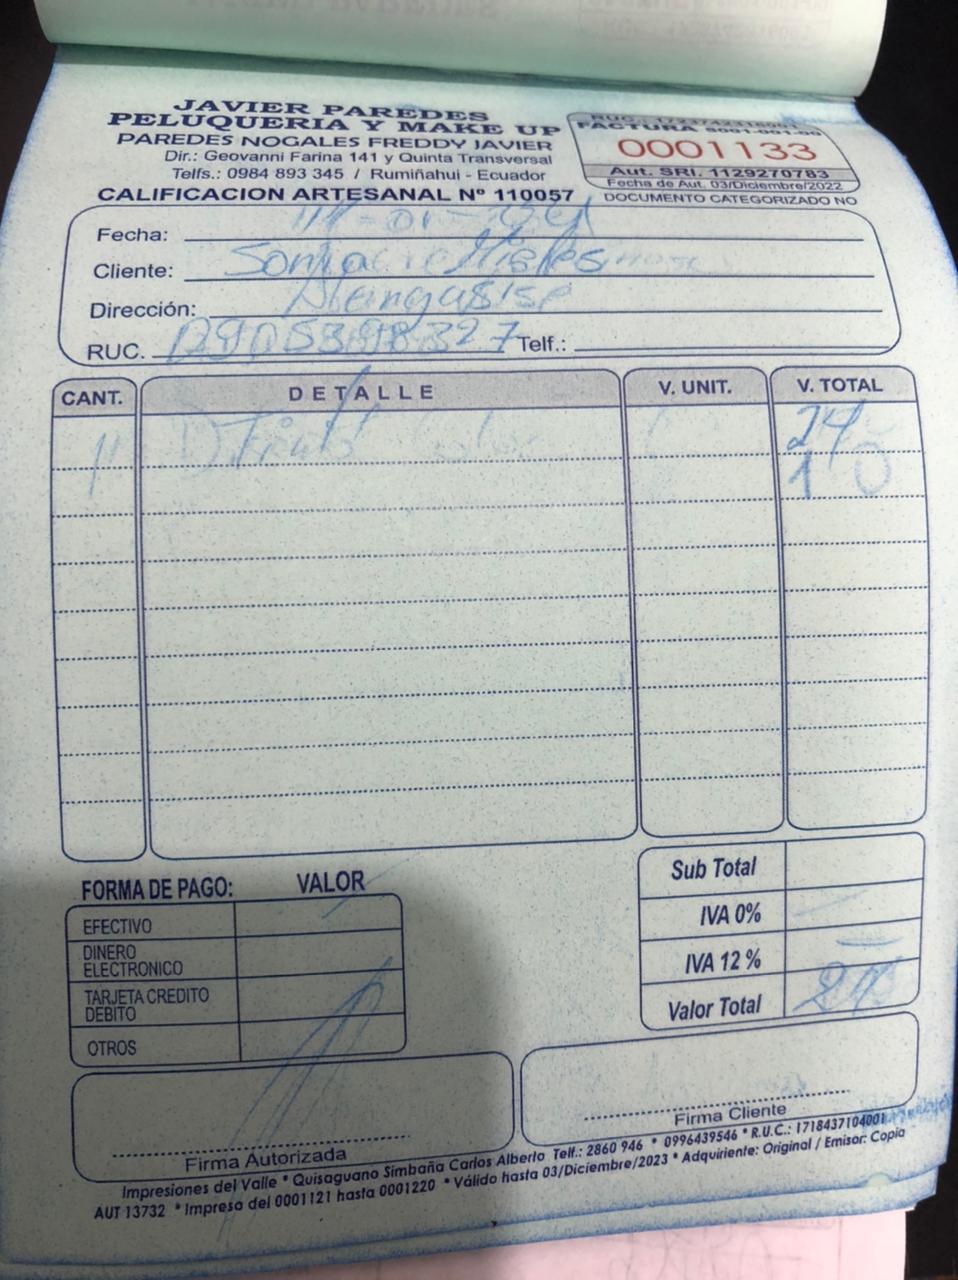 JAVIER PAREDES
PELUQUERIA Y MAKE UP
PAREDES NOGALES FREDDY JAVIER
Dir.: Geovanni Farina 141 y Quinta Transversal
Telfs.: 0984 893 345 / Rumiñahui - Ecuador
CALIFICACION ARTESANAL Nº 110057
FACTURA S001-001-00
0001133
Aut. SRI. 1129270783
Fecha de Aut. 03/Diciembre/2022
DOCUMENTO CATEGORIZADO NO
Fecha:
Cliente: Sonia
Dirección:
RUC. Telf.:
CANT. DETALLE V. UNIT. V. TOTAL
24
10
FORMA DE PAGO: VALOR
EFECTIVO
DINERO
ELECTRONICO
TARJETA CREDITO
DEBITO
OTROS
Sub Total
IVA 0%
IVA 12 %
Valor Total
Firma Autorizada
Firma Cliente
Impresiones del Valle * Quisaguano Simbaña Carlos Alberto Telf.: 2860 946 * 0996439546 * R.U.C.: 1718437104001
AUT 13732 * Impreso del 0001121 hasta 0001220 * Válido hasta 03/Diciembre/2023 * Adquiriente: Original / Emisor: Copia